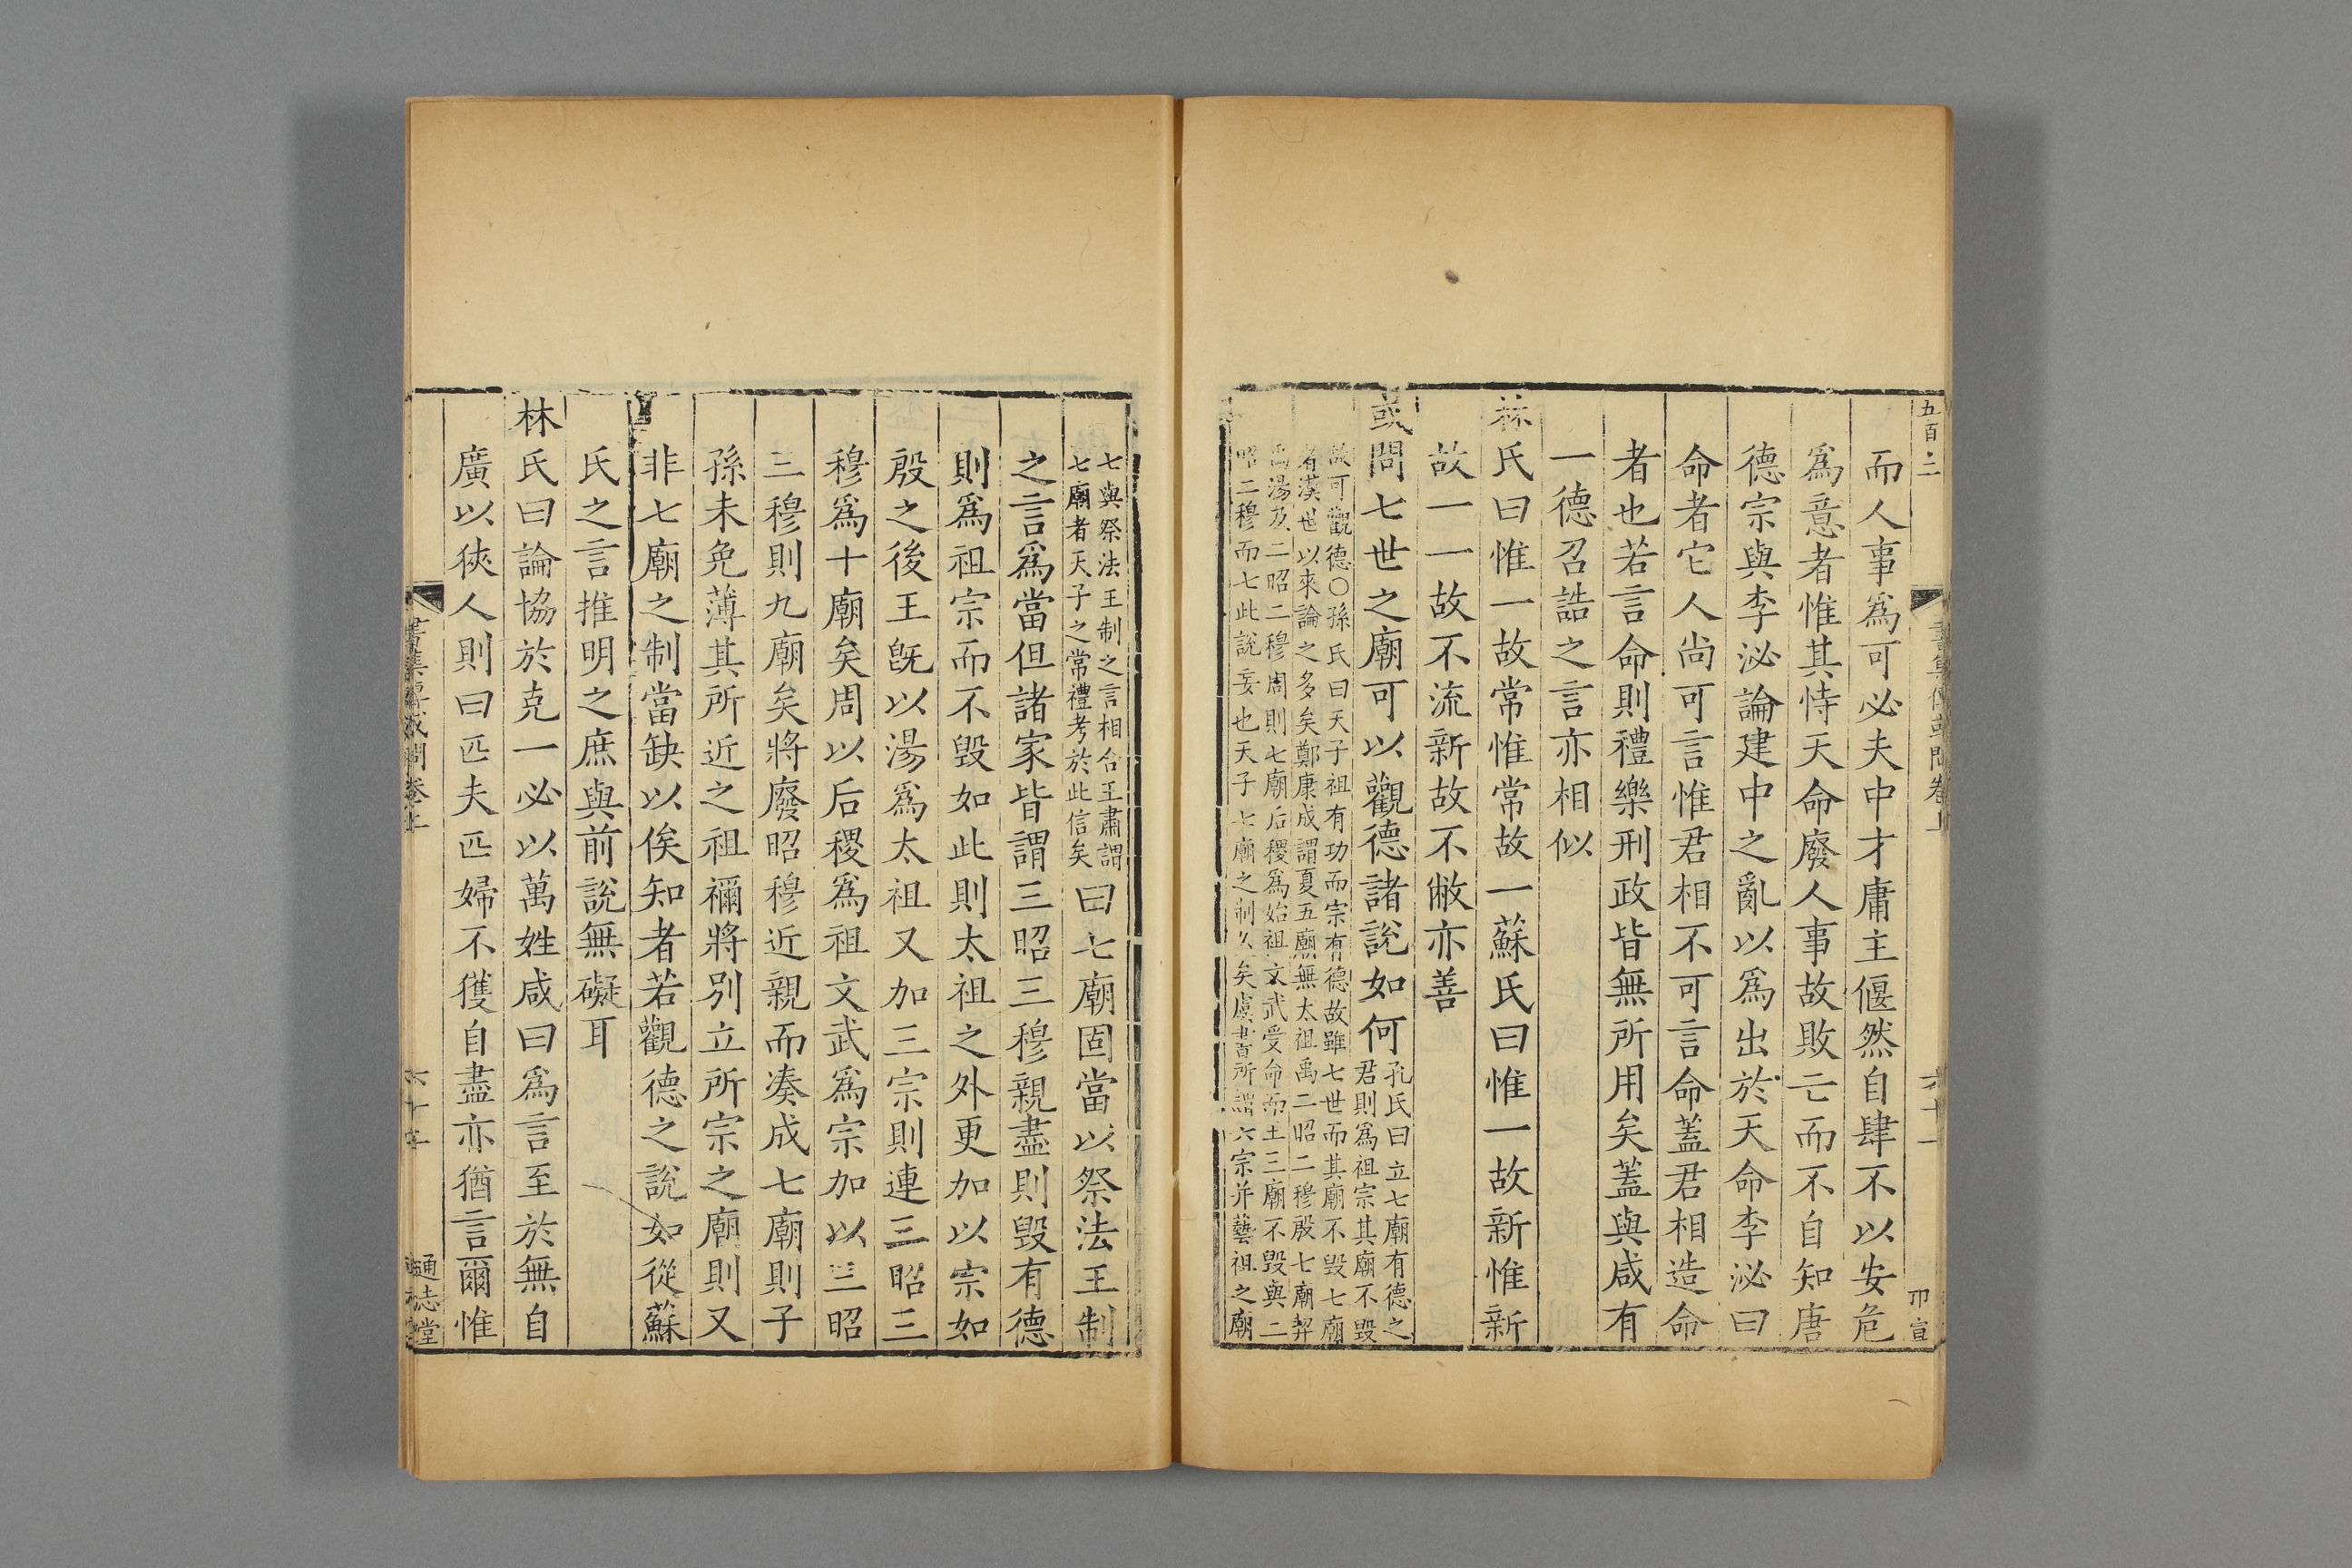 五百二
書集傳或問卷上
六十一
卬宣
而人事爲可必夫中才庸主偃然自肆不以安危
爲意者惟其恃天命廢人事故敗亡而不自知唐
德宗與李泌論建中之亂以爲出於天命李泌曰
命者它人尚可言惟君相不可言命蓋君相造命
者也若言命則禮樂刑政皆無所用矣蓋與咸有
一德召誥之言亦相似
林氏曰惟一故常惟常故一蘇氏曰惟一故新惟新
故一一故不流新故不敝亦善
或問七世之廟可以觀德諸說如何
孔氏曰立七廟有德之
君則爲祖宗其廟不毀
故可觀德○孫氏曰天子祖有功而宗有德故雖七世而其廟不毀七廟
者漢世以來論之多矣鄭康成謂夏五廟無太祖禹二昭二穆殷七廟契
禹湯及二昭二穆周則七廟后稷爲始祖文武受命而王三廟不毀與二
昭二穆而七此說妄也天子七廟之制久矣虞書所謂六宗并藝祖之廟
七與祭法王制之言相合王肅謂
七廟者天子之常禮考於此信矣
曰七廟固當以祭法王制
之言爲當但諸家皆謂三昭三穆親盡則毀有德
則爲祖宗而不毀如此則太祖之外更加以宗如
殷之後王旣以湯爲太祖又加三宗則連三昭三
穆爲十廟矣周以后稷爲祖文武爲宗加以三昭
三穆則九廟矣將廢昭穆近親而湊成七廟則子
孫未免薄其所近之祖禰將別立所宗之廟則又
非七廟之制當缺以俟知者若觀德之說如從蘇
氏之言推明之庶與前說無礙耳
林氏曰論協於克一必以萬姓咸曰爲言至於無自
廣以狹人則曰匹夫匹婦不獲自盡亦猶言爾惟
書集傳或問卷上
六十二
通志堂